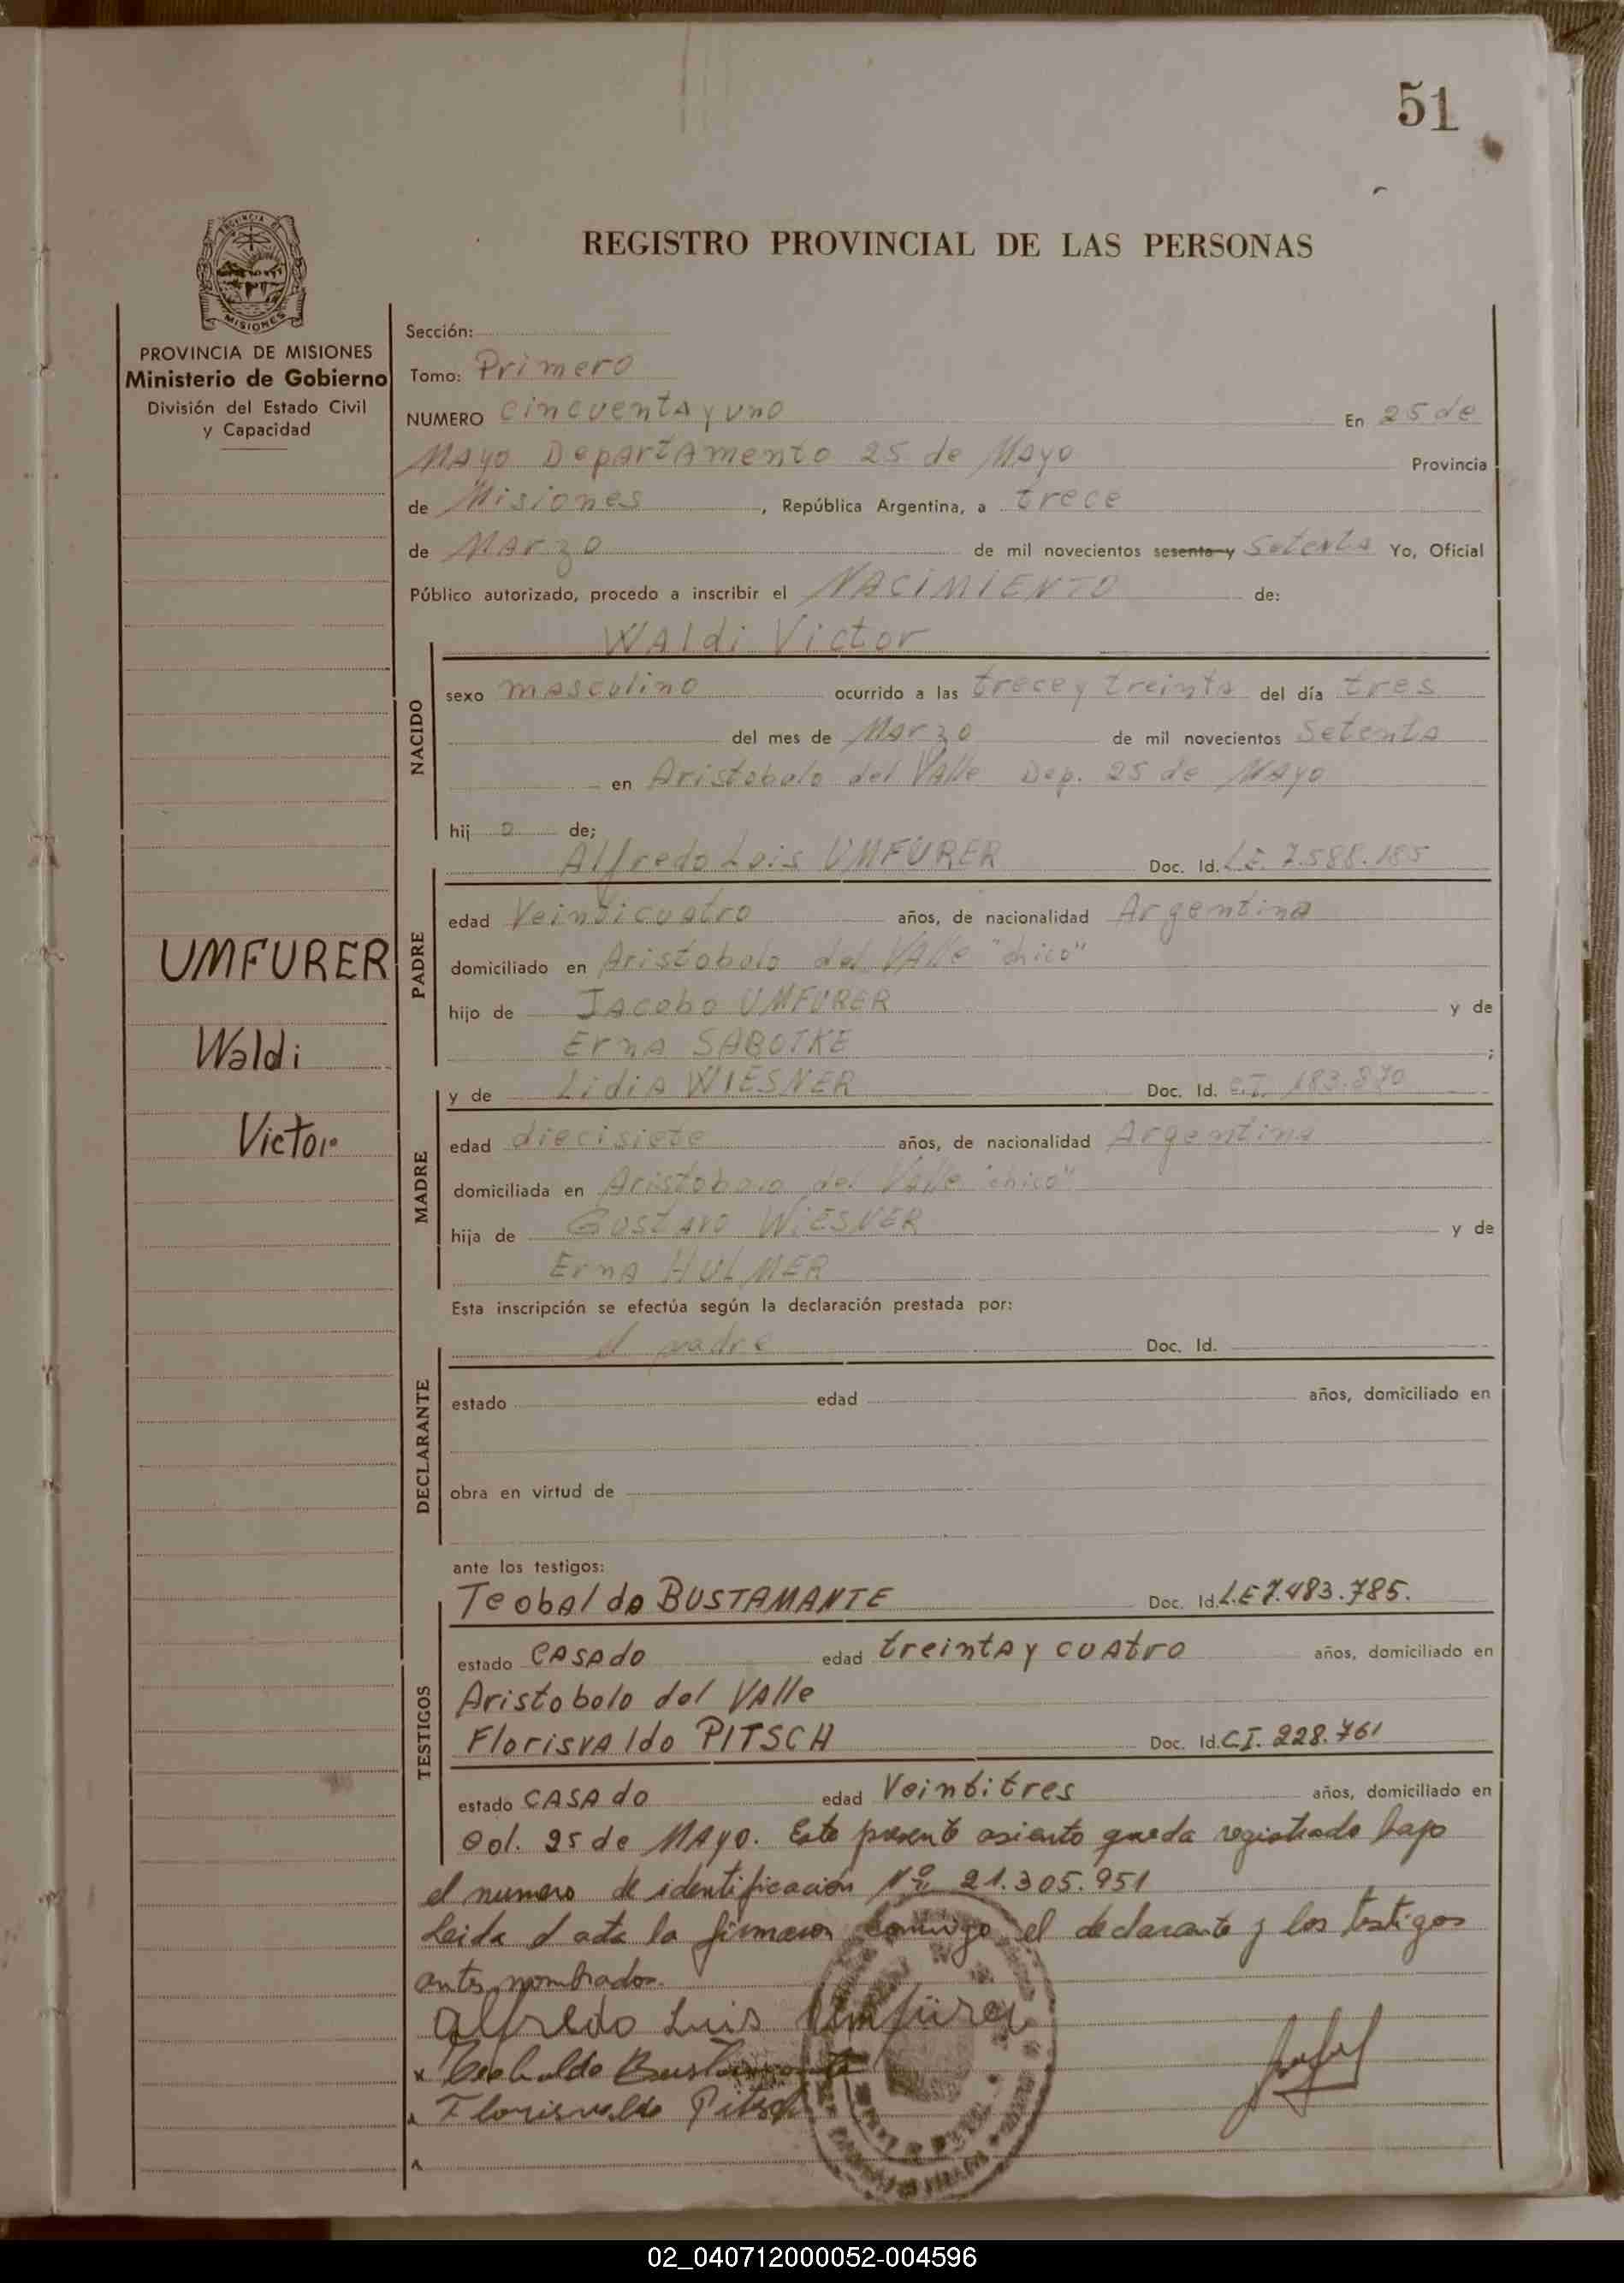 51
REGISTRO PROVINCIAL DE LAS PERSONAS
PROVINCIA DE MISIONES
Ministerio de Gobierno
División del Estado Civil
y Capacidad
UMFURER
Waldi
Victor
Sección:
Tomo: Primero
NUMERO cincuenta y uno En 25 de
Mayo Departamento 25 de Mayo Provincia
de Misiones, República Argentina, a trece
de Marzo de mil novecientos sesenta y Setenta Yo, Oficial
Público autorizado, procedo a inscribir el NACIMIENTO de:
Waldi Victor
NACIDO
sexo masculino ocurrido a las trece y treinta del día tres
del mes de Marzo de mil novecientos Setenta
en Aristobolo del Valle Dep. 25 de Mayo
hij o de;
Alfredo Luis UMFURER Doc. Id. L.E. 7.588.185
PADRE
edad Veinticuatro años, de nacionalidad Argentina
domiciliado en Aristobolo del Valle "chico"
hijo de Jacobo UMFURER y de
Erna SABOTKE ;
y de Lidia WIESNER Doc. Id. C.I. 183.870
MADRE
edad diecisiete años, de nacionalidad Argentina
domiciliada en Aristobolo del Valle "chico"
hija de Gustavo WIESNER y de
Erna HULMER
Esta inscripción se efectúa según la declaración prestada por:
el padre Doc. Id.
DECLARANTE
estado edad años, domiciliado en
obra en virtud de
ante los testigos:
Teobaldo BUSTAMANTE Doc. Id. L.E 7.483.785.
TESTIGOS
estado CASAdo edad treinta y cuatro años, domiciliado en
Aristobolo del Valle
Florisvaldo PITSCH Doc. Id. C.I. 228.761
estado CASAdo edad Veintitres años, domiciliado en
Col. 25 de Mayo. Este presente asiento queda registrado bajo
el numero de identificación Nº 21.305.951
Leida el acta la firmaron conmigo el declarante y los testigos
antes nombrados.
Alfredo Luis Umfürer
x Teobaldo Bustamante
x Florisvaldo Pitsch
02_040712000052-004596